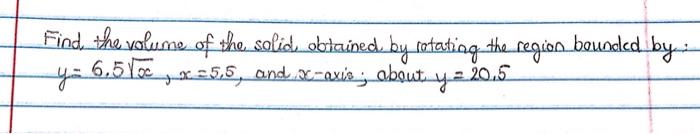 Find the volume of the solid obtained by rotating the region bounded by:
y = 6.5√x, x = 5.5, and x-axis; about y = 20.5